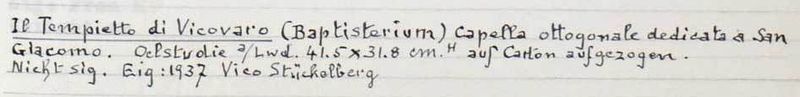 Il Tempietto di Vicovaro (Baptisterium) Capella ottogonale dedicata a San
Giacomo. Oelstudie a/Lwd. 41.5 x 31.8 cm. H auf Carton aufgezogen.
Nicht sig. Eig: 1937 Vico Stückelberg